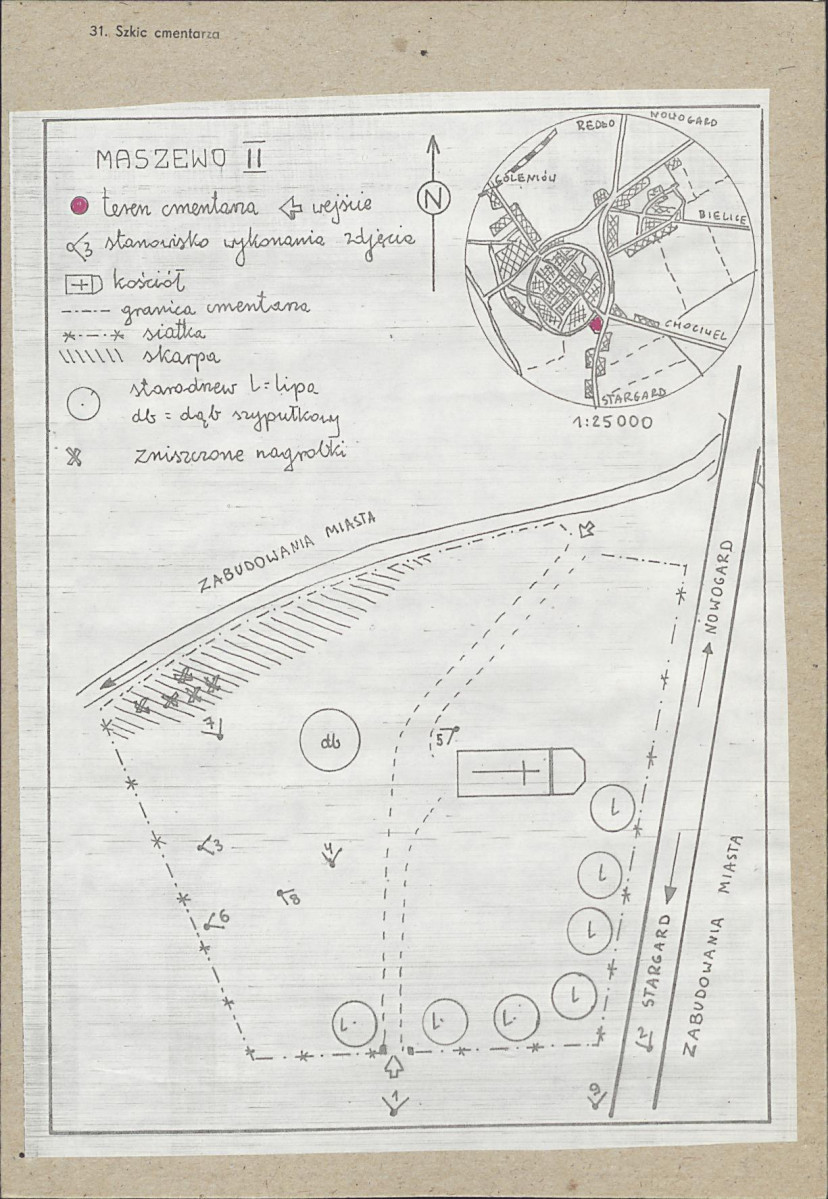 31. Szkic cmentarza
MASZEWO II
teren cmentarza wejście
3 stanowisko wykonania zdjęcia
kościół
granica cmentarza
siatka
skarpa
starodrzew L = lipa
db = dąb szypułkowy
zniszczone nagrobki
N
REDŁO
NOWOGARD
GOLENIÓW
BIELICE
CHOCIWEL
STARGARD
1:25000
ZABUDOWANIA MIASTA
NOWOGARD
7
db
5
L
3
4
L
8
6
L
STARGARD
ZABUDOWANIA MIASTA
L
L
L
L
2
1
9